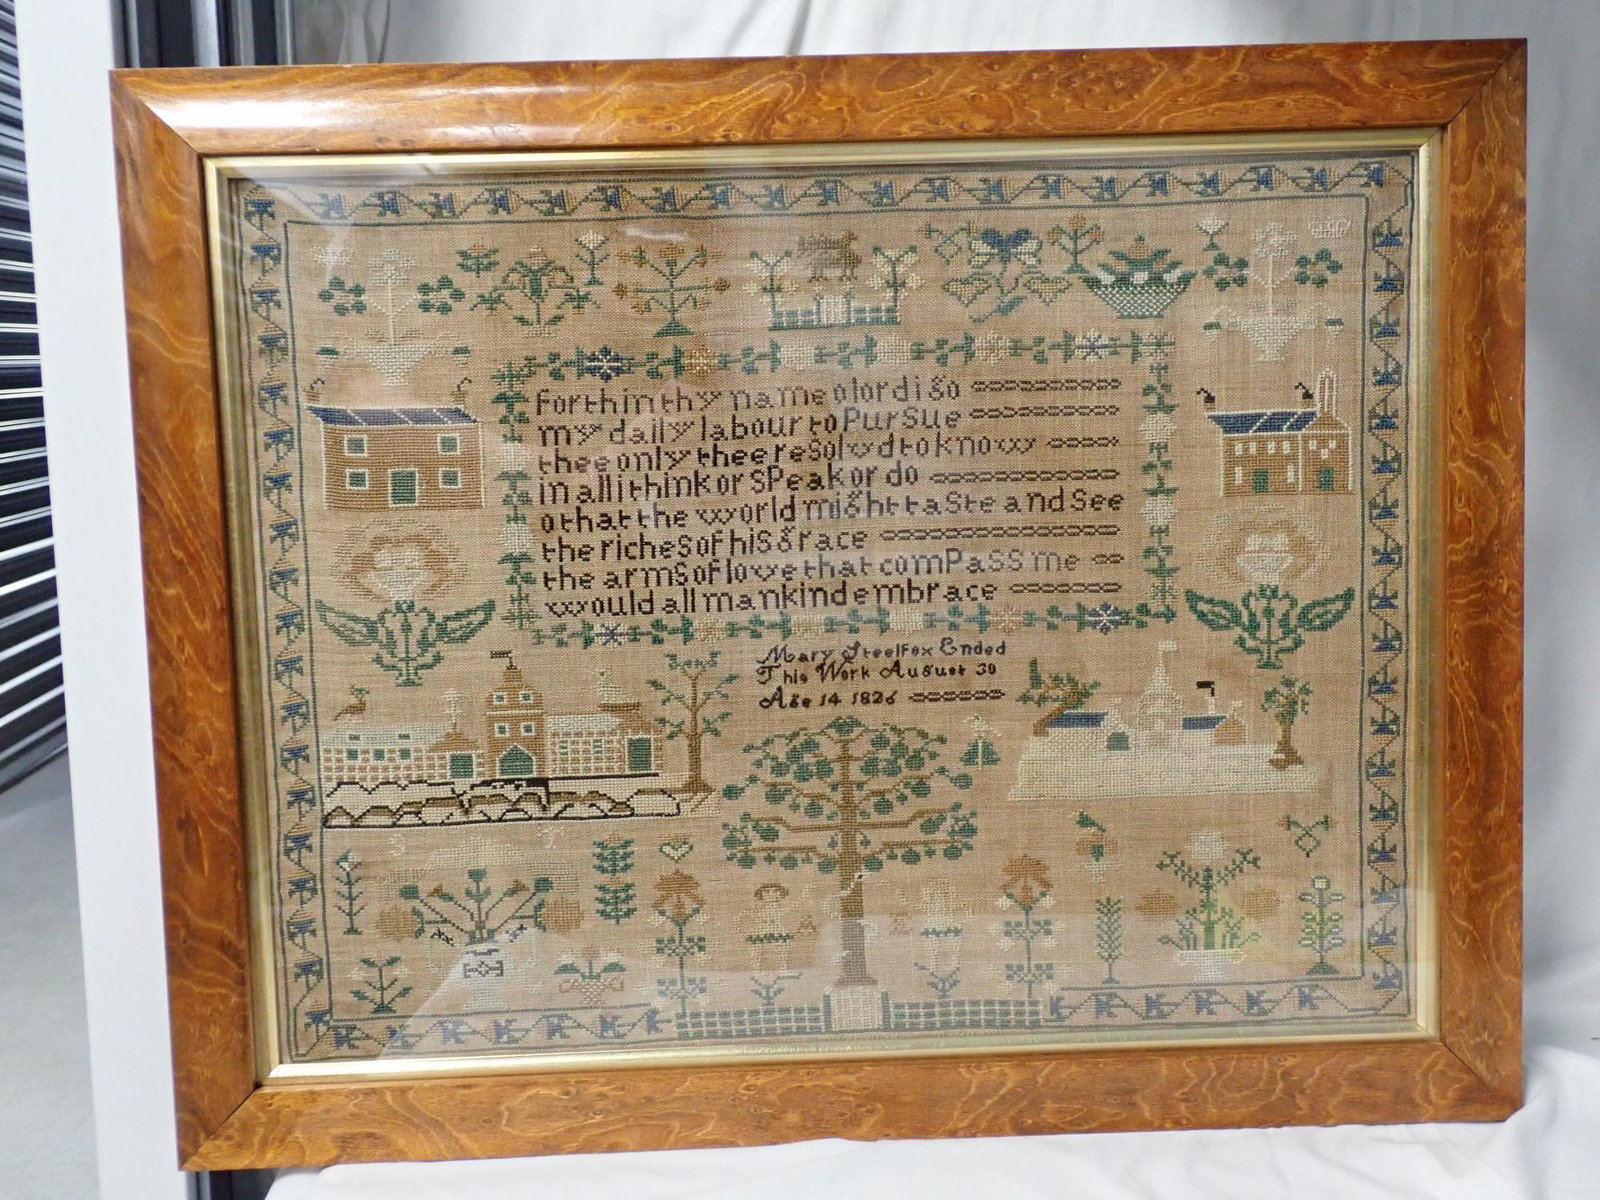 forth in thy name o lord i go
my daily labour to PurSue
thee only thee reSolvd to know
in all i think or SPeak or do
o that the world might taSte and See
the richeS of hiS grace
the armS of love that comPaSS me
would all mankind embrace
Mary Steelfox Ended
This Work August 30
Age 14 1826